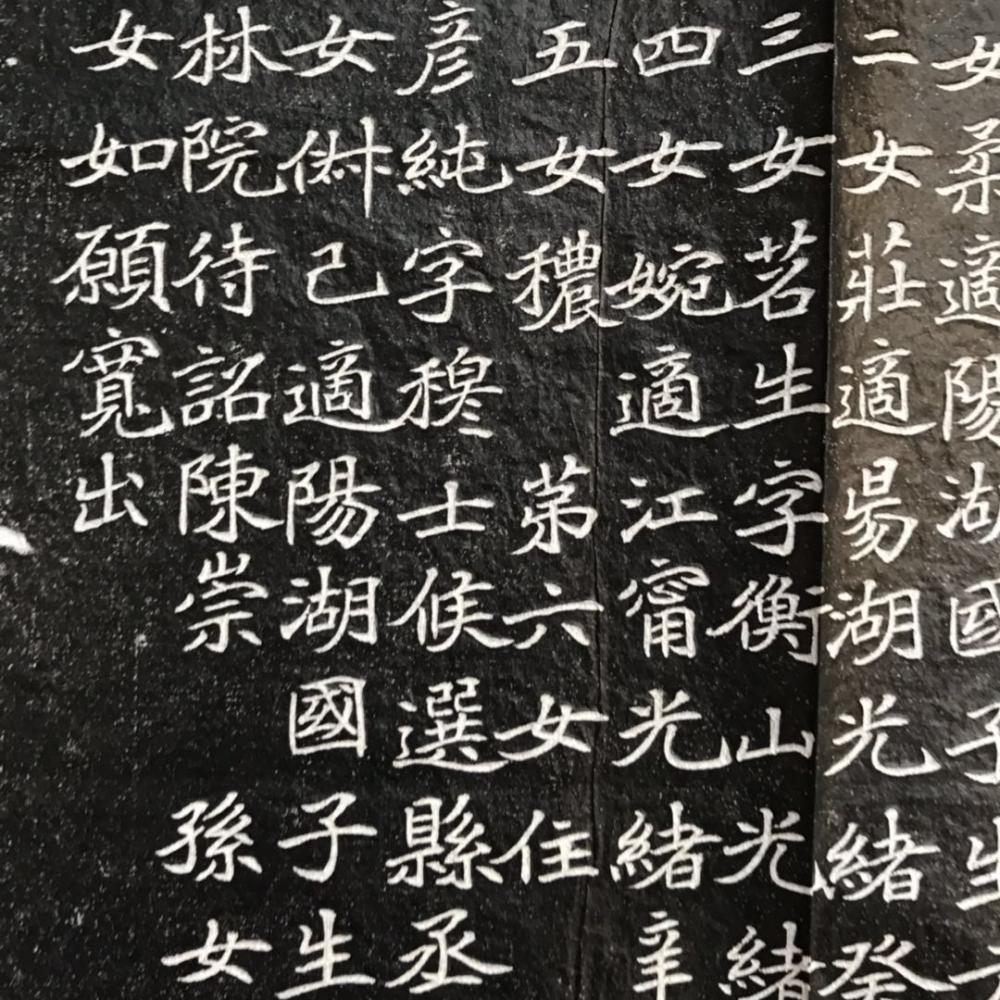 女柔適陽湖國子生
二女莊適昜湖光緒癸
三女茗生字衡山光緒
四女婉適江甯光緒辛
五女穠 苐六女住
彦純字穆士候選縣丞
女𠈁己適陽湖國子生
林院待詔陳崇 孫女
女如願寬出